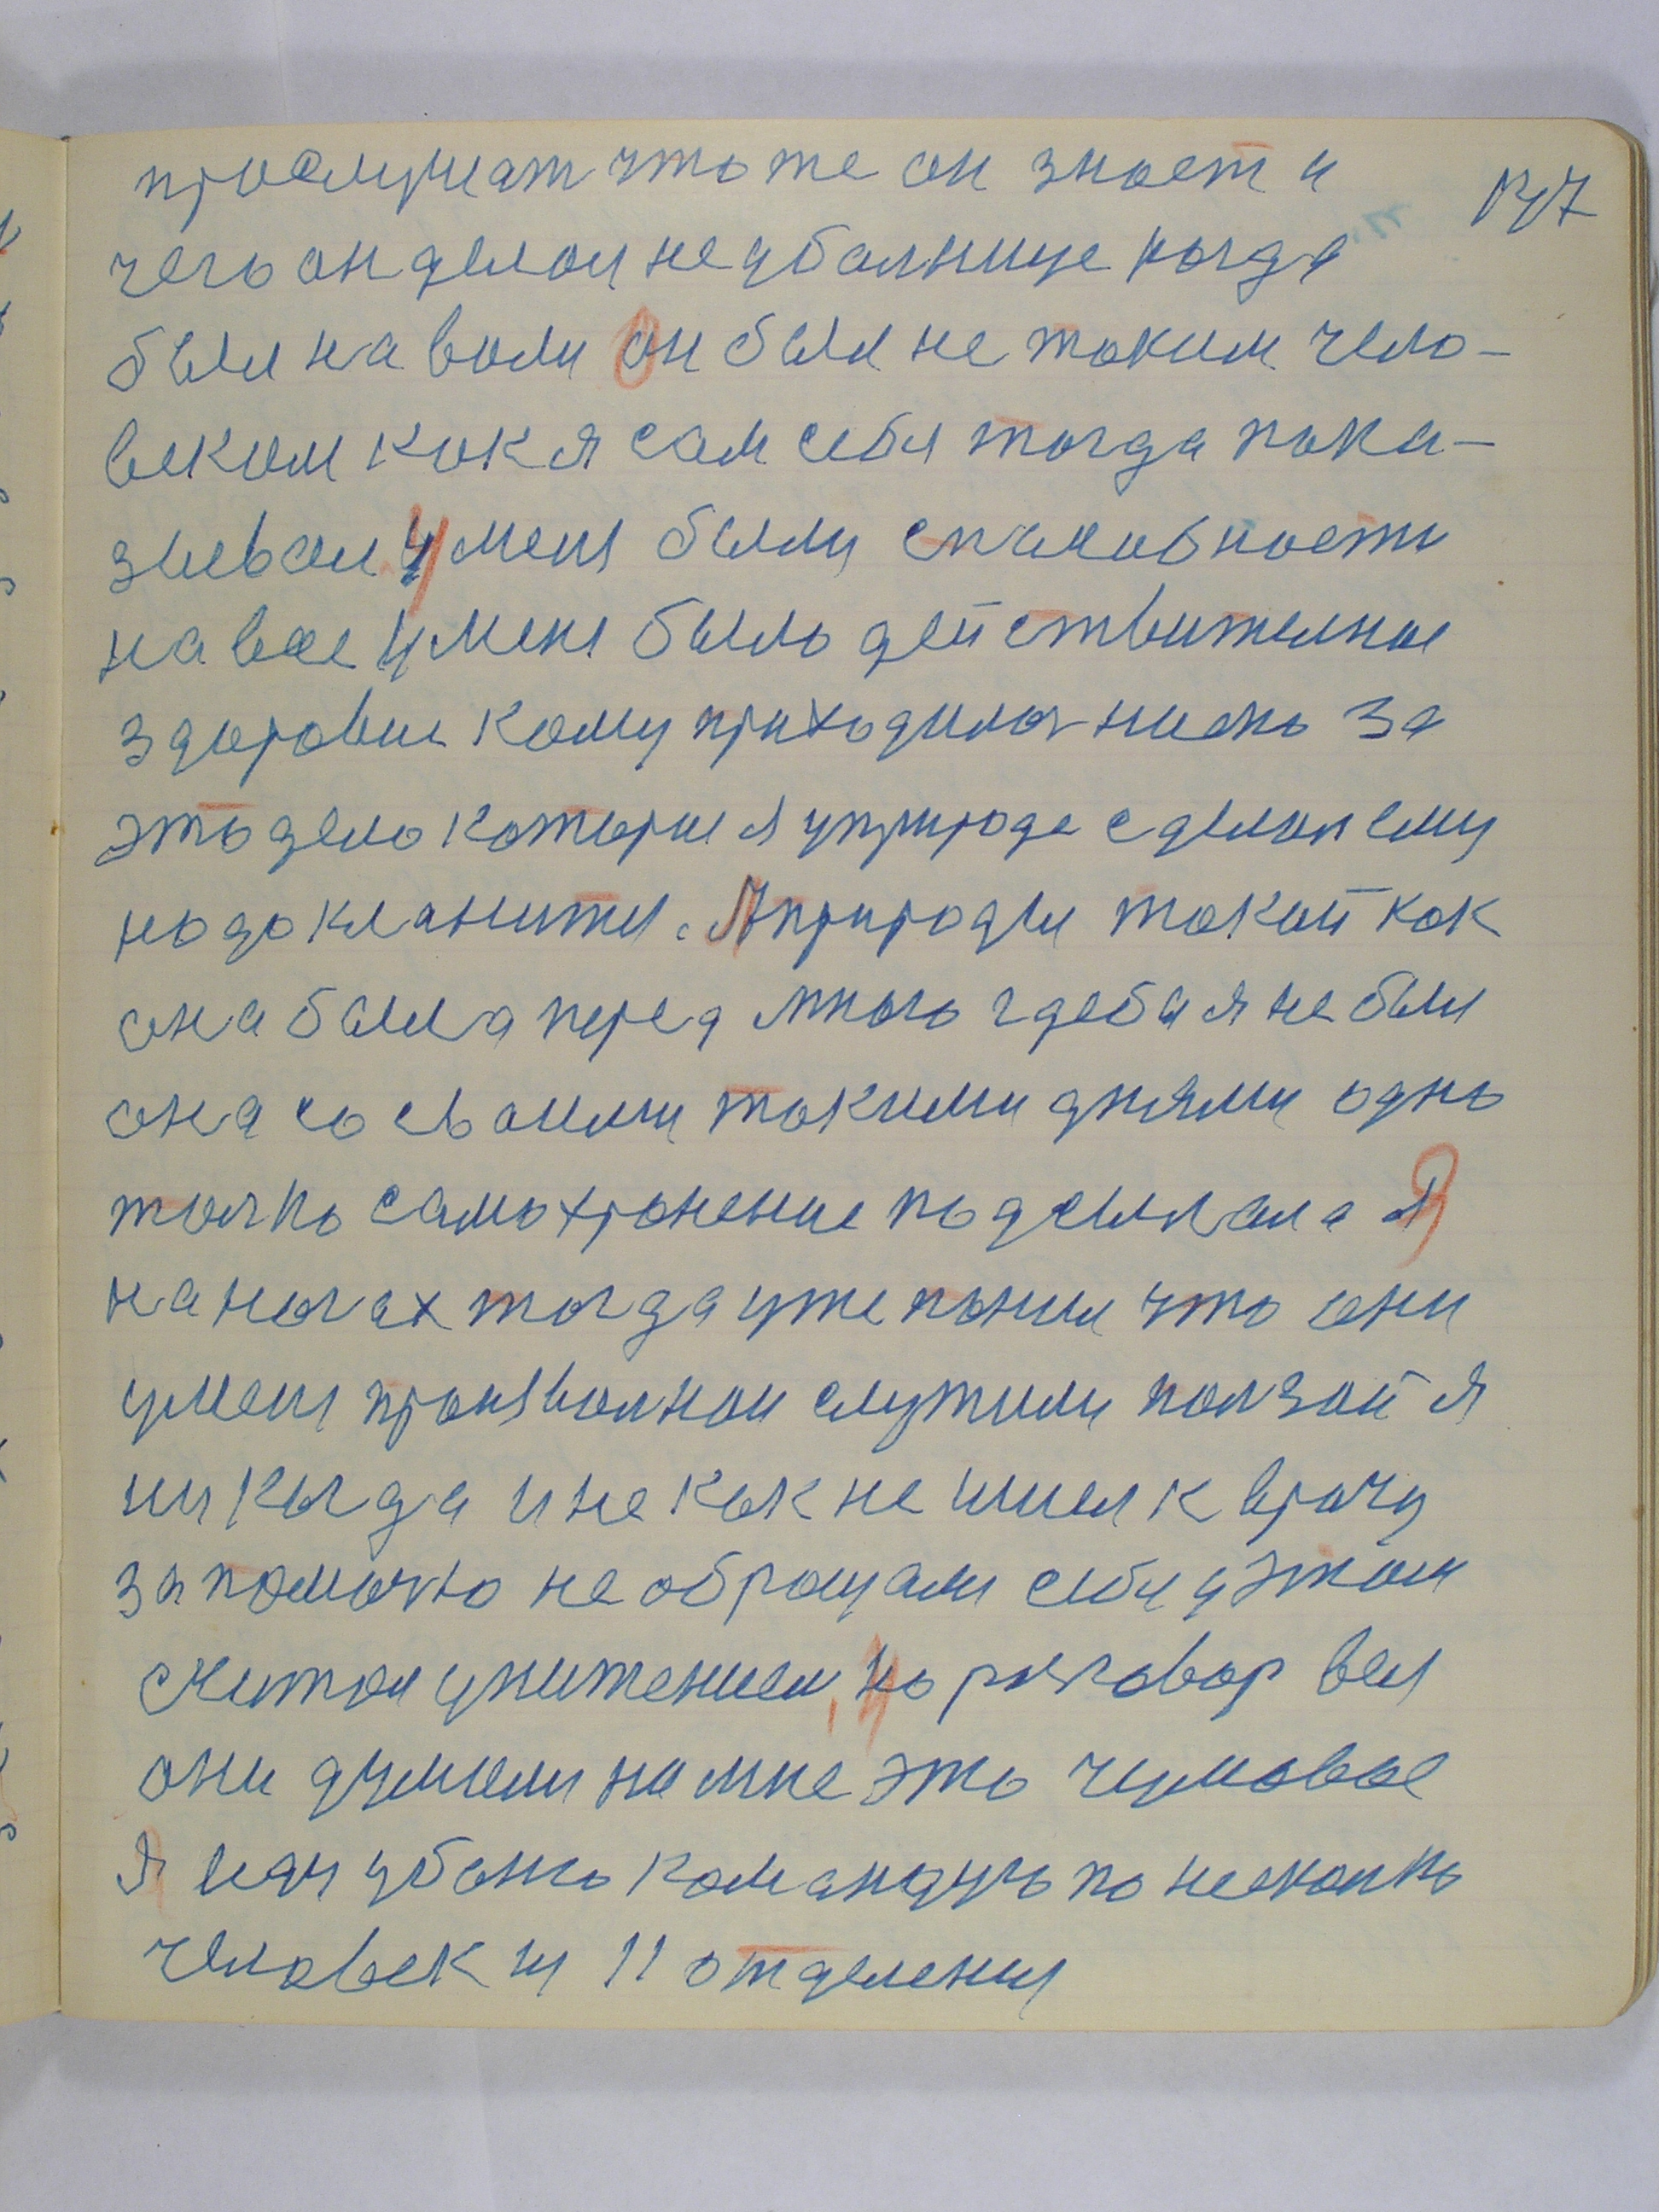 147
прослушат что же он знает и
чего он делол не убольнице когда
был на воли он был не таким чело-
веком как я сам себя тогда пока-
зывал у меня были способности
на все у меня было действителное
здоровие кому приходилос несть за
это дело которые я уприроде сделал ему
надо кланится. А природы такой как
она была перед много где бы я не был
она со своими такими днями одно
толко самохронение подсылала я
на ногах тогда уже понил что они
уменя произволной служили ползой я
никогда и некак не шшел к врачу
за помочю не обращал себя у этом
считал унижением, но разговор вел
они думали на мне это чумовое
я иду убаню командую по несколко
человек из 11 отделения